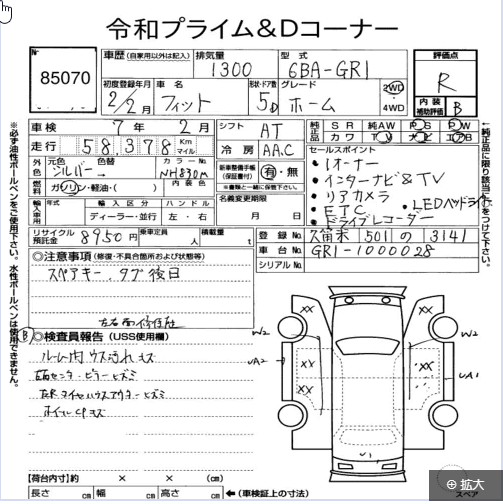 令和プライム&Dコーナー
Nr
85070
車歴(自家用以外は記入)
排気量
1300
型式
6BA-GR1
評価点
R
内装補助評価
B
初度登録年月
2/2月
車名
フィット
形状・ドア数
5D
グレード
ホーム
2WD・4WD
車検
7年2月
走行
58,378
Km
マイル
外色
元色
シルバー
色替
カラーNo
NH830M
燃料
ガソリン・軽油・( )
内装色
輸入車用
年式
輸入区分
ディーラー・並行
ハンドル
左・右
リサイクル預託金
8950円
乗車定員
人
積載量
t
シフト
AT
冷房
AAC
新車整備手帳(保証書付)
有・無
※書類と一緒に保管下さい。
名義変更期限
月 日
純正品
SR 純AW PS PW
カワ TV ナビ エアB
セールスポイント
・1オーナー
・インターナビ&TV
・リアカメラ
・ETC ・LEDヘッドライト
・ドライブレコーダー
登録No.
久留米 501 の 3141
車台No.
GR1-1000028
シリアルNo.
◎注意事項(修復・不具合箇所および状態等)
スペアキー、タブ後日
左右面修復歴
B
◎検査員報告(USS使用欄)
ルーム内ウス汚れキズ
ホイルCPキズ
【荷台内寸】約 × × (cm)
長さ cm 幅 cm 高さ cm
←(車検証上の寸法)
W2
W2
XX
XX
XX
XX
UA2
UA1
U1
スペア
拡大
※必ず油性ボールペンをご使用下さい。水性ボールペンは使用できません。